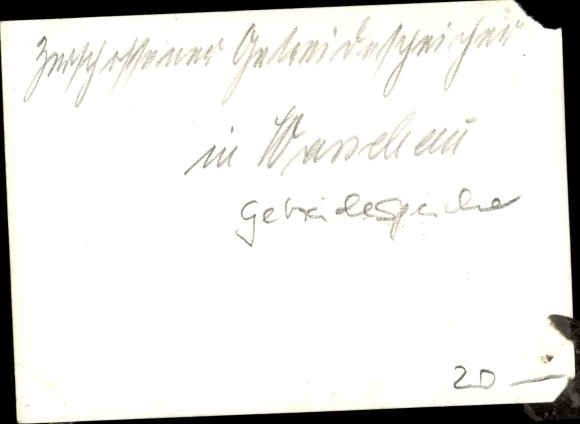 Zerschossener Getreidespeicher
in Warschau
Getreidespeicher
20 —